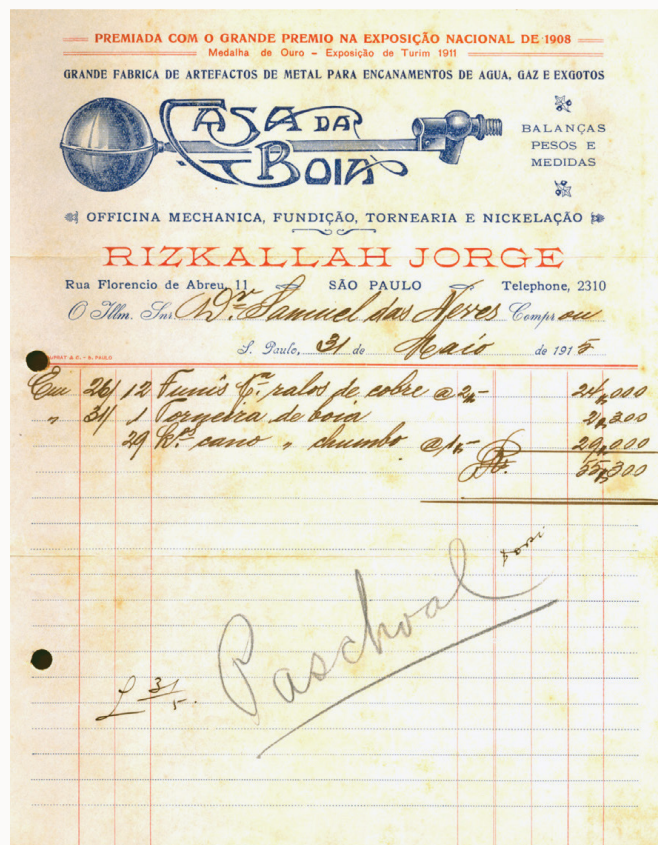 PREMIADA COM O GRANDE PREMIO NA EXPOSIÇÃO NACIONAL DE 1908
Medalha de Ouro – Exposição de Turim 1911
GRANDE FABRICA DE ARTEFACTOS DE METAL PARA ENCANAMENTOS DE AGUA, GAZ E EXGOTOS
CASA DA BOIA
BALANÇAS
PESOS E
MEDIDAS
OFFICINA MECHANICA, FUNDIÇÃO, TORNEARIA E NICKELAÇÃO
RIZKALLAH JORGE
Rua Florencio de Abreu, 11 SÃO PAULO Telephone, 2310
O Illm. Snr. Dr. Samuel das Neves Comprou
S. Paulo, 31 de Maio de 1915
DUPRAT & C. - S. PAULO
Em 26/ 12 Funis pa. ralos de cobre @ 2$- 24$000
" 31/ 1 Torneira de boia 2$300
29 Ks. cano " chumbo @ 1$- 29$000
Rs. 55$300
Paschoal
31/5.